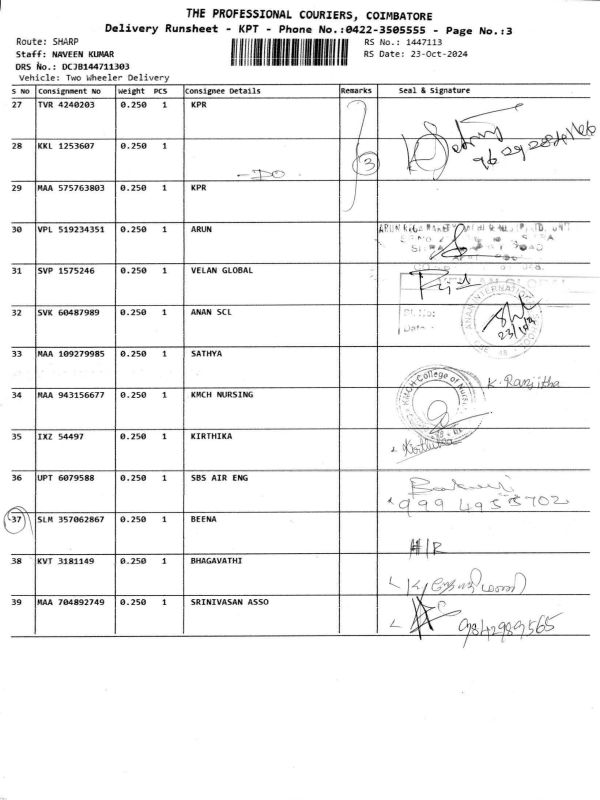 THE PROFESSIONAL COURIERS, COIMBATORE
Delivery Runsheet - KPT - Phone No.:0422-3505555 - Page No.:3
Route: SHARP
RS No.: 1447113
Staff: NAVEEN KUMAR
RS Date: 23-Oct-2024
DRS No.: DCJB144711303
Vehicle: Two Wheeler Delivery
S No Consignment No Weight PCS Consignee Details Remarks Seal & Signature
27 TVR 4240203 0.250 1 KPR
28 KKL 1253607 0.250 1
3
-DO-
29 MAA 575763803 0.250 1 KPR
30 VPL 519234351 0.250 1 ARUN
31 SVP 1575246 0.250 1 VELAN GLOBAL
32 SVK 60487989 0.250 1 ANAN SCL
33 MAA 109279985 0.250 1 SATHYA
K. Ranjitha
34 MAA 943156677 0.250 1 KMCH NURSING
KMCH College of
35 IXZ 54497 0.250 1 KIRTHIKA
Kirthika
36 UPT 6079588 0.250 1 SBS AIR ENG
9994955702
37 SLM 357062867 0.250 1 BEENA
H/R
38 KVT 3181149 0.250 1 BHAGAVATHI
39 MAA 704892749 0.250 1 SRINIVASAN ASSO
9842989565